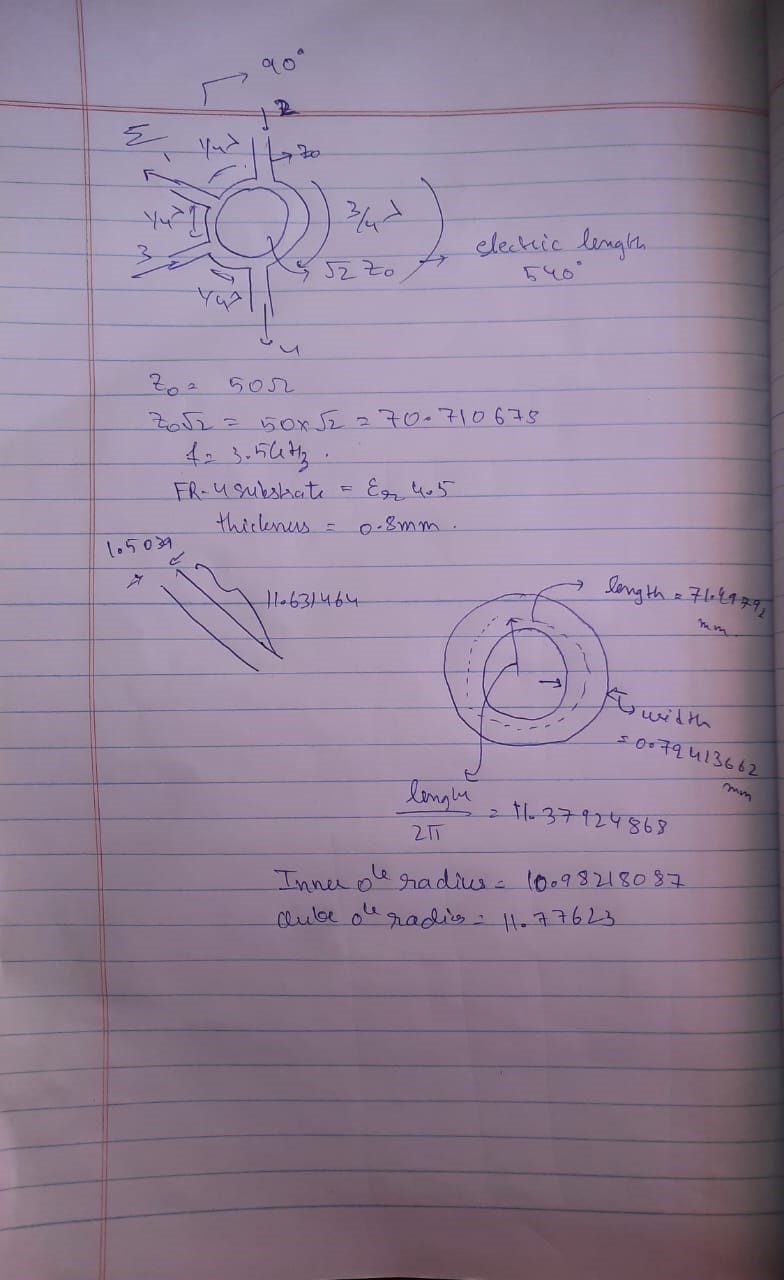 90°
2
Σ
1/4λ
Z0
1
1/4λ
3/4λ
3
electric length
540°
√2 Z0
1/4λ
4
Z0 = 50Ω
Z0√2 = 50×√2 = 70.710678
f = 3.5GHz.
FR-4 substrate = Er 4.5
thickness = 0.8mm.
1.5039
11.631464
length = 71.49792
mm
width
= 0.79413662
mm
length
2π
= 11.37924868
Inner ole radius = 10.98218087
radius = 11.77623